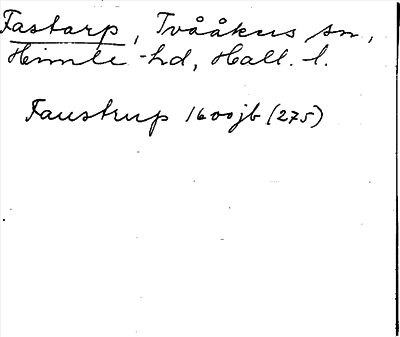 Fastarp, Tvååkers sn,
Himle hd, Hall. l.
Faustrup 1600 jb (275)